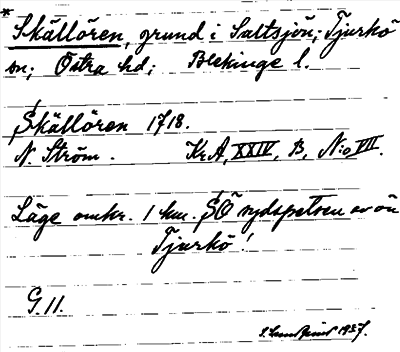 *Skällören, grund i Saltsjön; Tjurkö
sn; Östra hd; Blekinge l.
Skällören 1718.
N. Ström. KrA, XXIV, B, N:o VII.
Läge omkr. 1 km. SÖ sydspetsen av ön
Tjurkö!
G. 11.
1937.